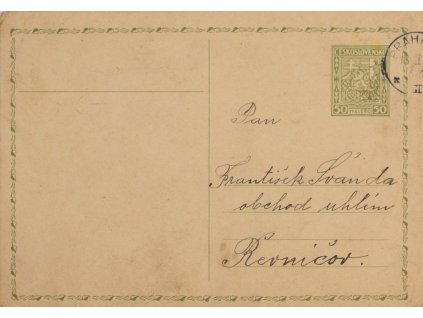 ČESKOSLOVENSKO
50 50
PRAHA
Pan
František Švanda
obchod uhlím
Řevničov.